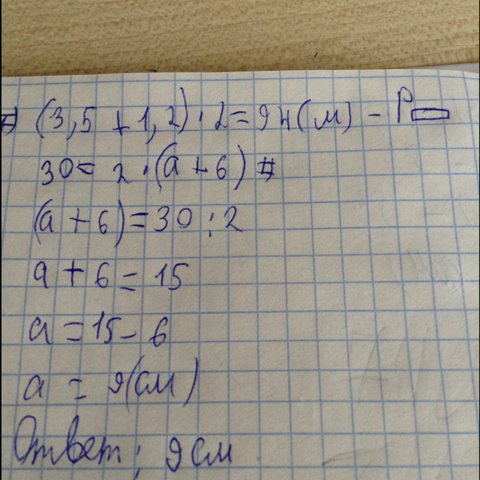 (3,5 + 1,2) · 2 = 9 4 (м) – P
30 = 2 · (a + 6)
(a + 6) = 30 : 2
a + 6 = 15
a = 15 – 6
a = 9 (см)
Ответ: 9 см